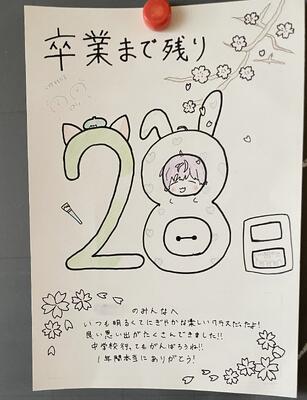 卒業まで残り
28日
のみんなへ
いつも明るくてにぎやかな楽しいクラスだったよ!
良い思い出がたくさんできました!!
中学校行ってもがんばろうね!!
1年間本当にありがとう!